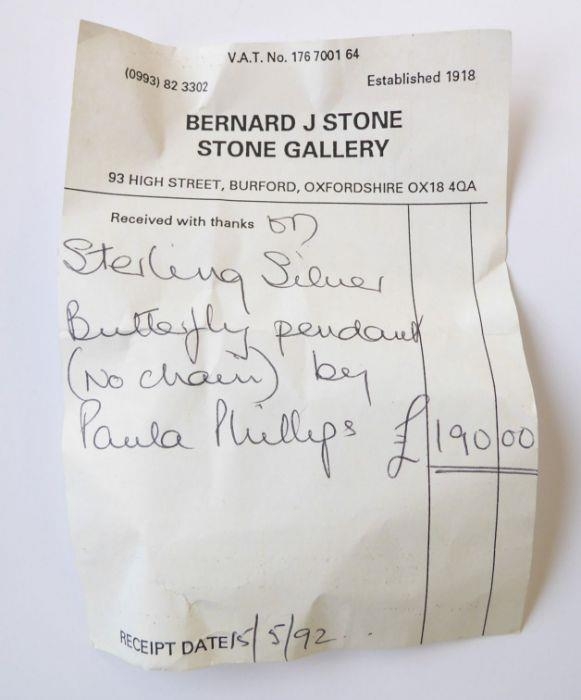 V.A.T. No. 176 7001 64
(0993) 82 3302 Established 1918
BERNARD J STONE
STONE GALLERY
93 HIGH STREET, BURFORD, OXFORDSHIRE OX18 4QA
Received with thanks
Sterling Silver
Butterfly pendant
(No chain) by
Paula Phillips £ 190 00
RECEIPT DATE 15/5/92